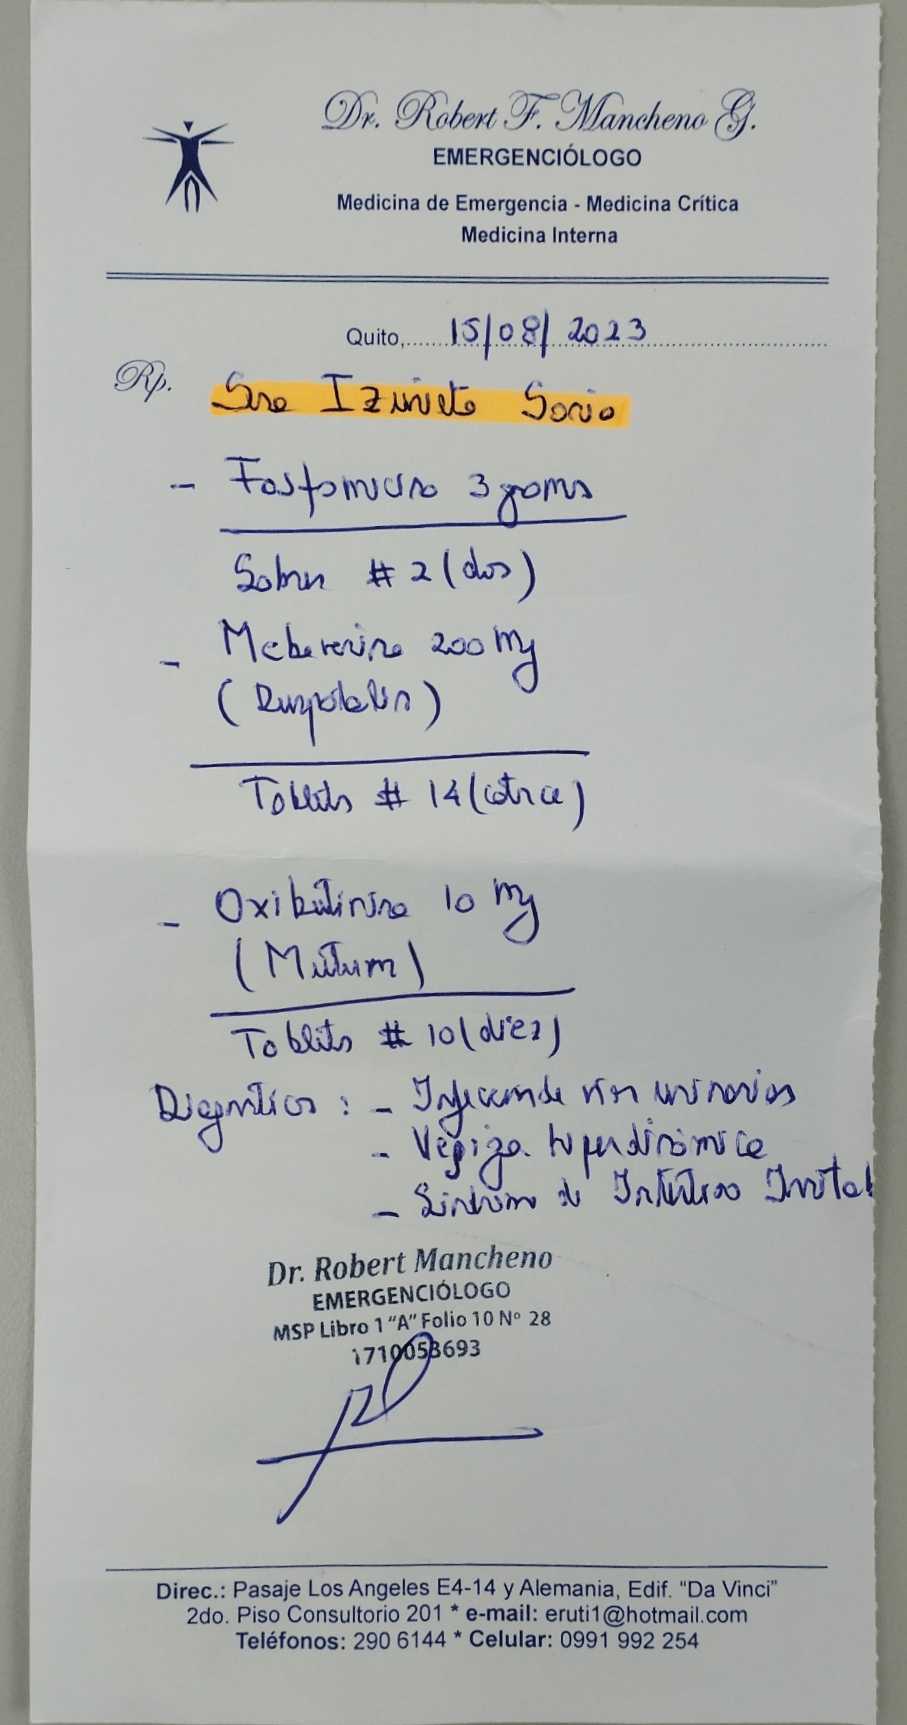 Dr. Robert F. Mancheno G.
EMERGENCIÓLOGO
Medicina de Emergencia - Medicina Crítica
Medicina Interna
Quito, 15/08/2023
Rp.
Sra
- Fosfomicina 3 gramos
Sobres # 2 (dos)
- Mebeverina 200 mg
(Duspatalin)
Tablets # 14 (catorce)
- Oxibutinina 10 mg
(Mutum)
Tablets # 10 (diez)
Diagnóstico: - Infección de vías urinarias
- Vejiga hiperdinámica
- Síndrome de Intestino Irritable
Dr. Robert Mancheno
EMERGENCIÓLOGO
MSP Libro 1 "A" Folio 10 Nº 28
1710053693
Direc.: Pasaje Los Angeles E4-14 y Alemania, Edif. "Da Vinci"
2do. Piso Consultorio 201 * e-mail: eruti1@hotmail.com
Teléfonos: 290 6144 * Celular: 0991 992 254